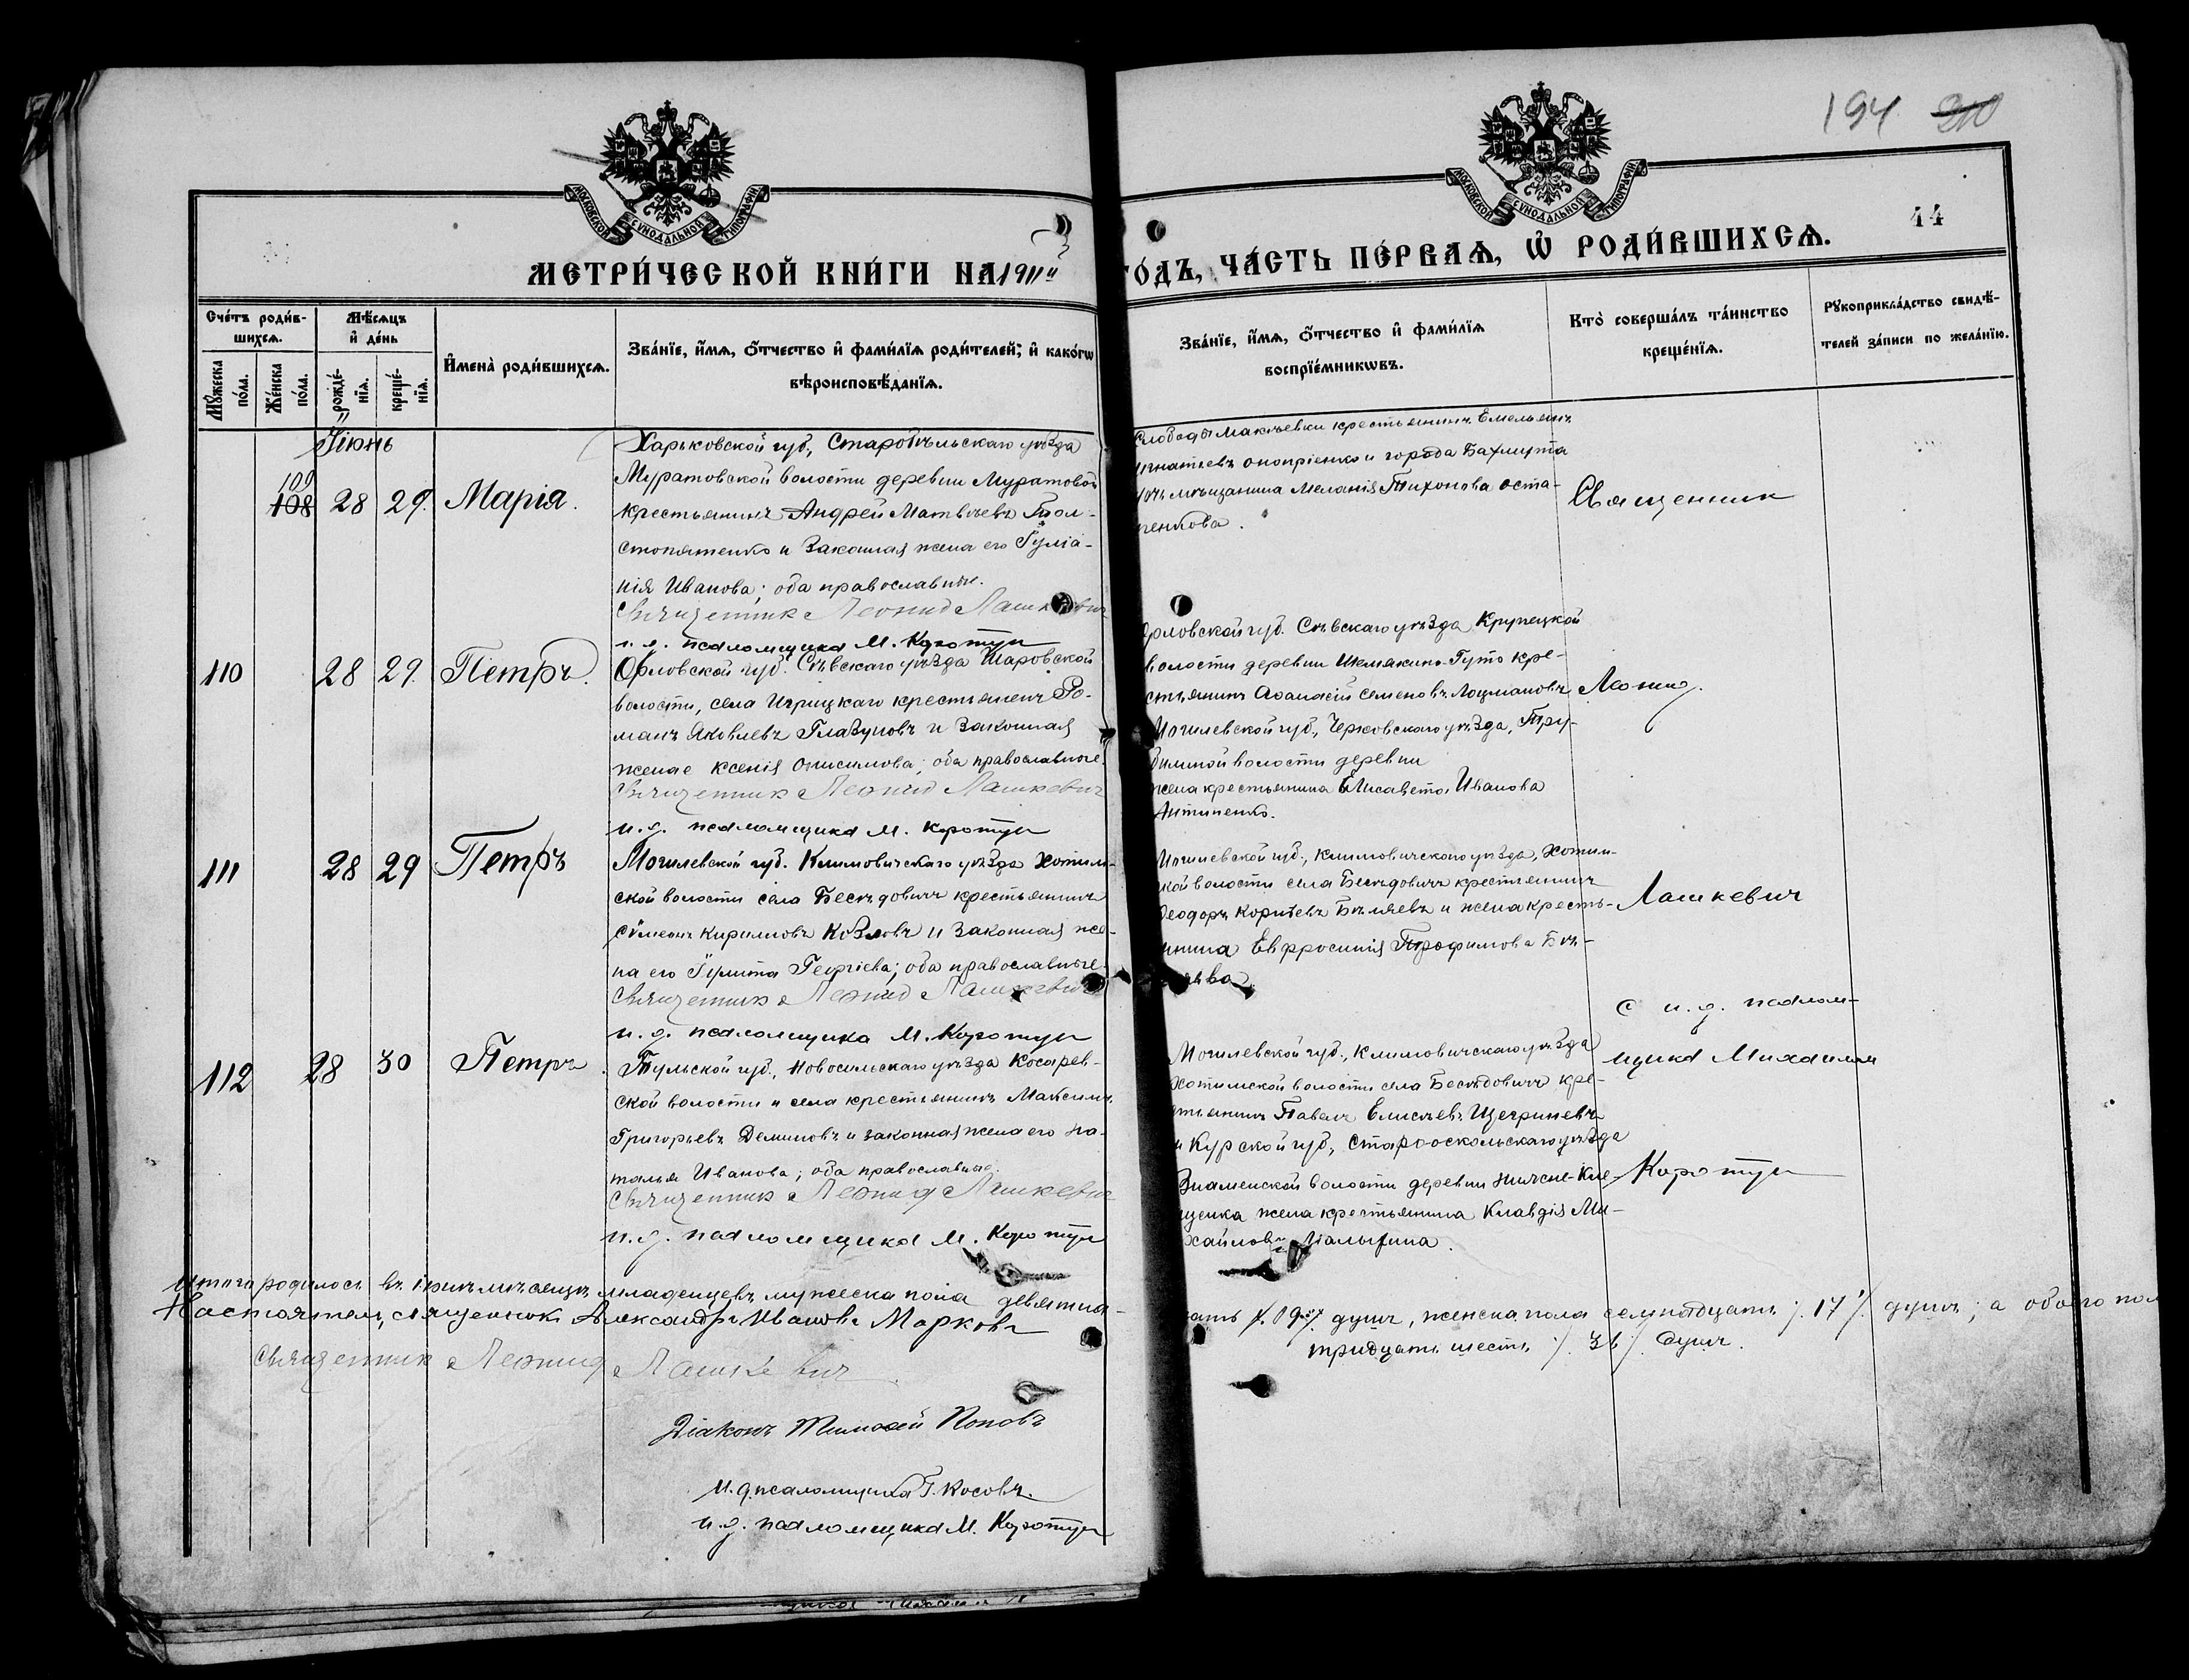 194 210
МОСКОВСКОЙ СѴНОДАЛЬНОЙ ТИПОГРАФІИ
МОСКОВСКОЙ СѴНОДАЛЬНОЙ ТИПОГРАФІИ
44
МЕТРИ́ЧЕСКОЙ КНИ́ГИ НА 1911й
ГО́ДЪ, ЧА́СТЬ ПЕ́РВАѦ, Ѡ҆ РОДИ́ВШИХСѦ.
Сче́тъ роди́в-
шихсѧ.
Мꙋ́жеска по́ла.
Же́нска по́ла.
Мѣ́сѧцъ
и҆ де́нь
рожде́-нїѧ.
креще́-нїѧ.
И҆мена̀ роди́вшихсѧ.
Зва́нїе, и҆́мѧ, ѻ҆́тчество и҆ фами́лїѧ роди́телей; и҆ како́гѡ
вѣроисповѣ́данїѧ.
Зва́нїе, и҆́мѧ, ѻ҆́тчество и҆ фами́лїѧ
воспрїе́мникѡвъ.
Кто̀ соверша́лъ та́инство
креще́нїѧ.
Рꙋкоприкла́дство свидѣ́-
телей за́писи по жела́нїю.
Іюнь
109
108 28 29. Марія.
Харьковской губ., Старобѣльскаго уѣзда
Муратовской волости деревни Муратовой
крестьянинъ Андрей Матвѣевъ Тол-
стопятенко и законная жена его Іуліа-
нія Иванова; оба православные.
Священникъ Леонид Лашкевич
и. д. псаломщика М. Коротун
слободы Макѣевки крестьянинъ Емельянъ
Игнатьевъ Оноприенко и города Бахмута
дочь мѣщанина Меланія Тихонова Оста-
пенкова.
Священник
110 28 29. Петръ.
Орловской губ. Сѣвскаго уѣзда Шаровской
волости, села Игрицкаго крестьянинъ Ро-
манъ Яковлевъ Глазуновъ и законная
жена е Ксенія Онисимова; оба православные.
Священник Леонид Лашкевич
и. д. псаломщика М. Коротун
Орловской губ. Сѣвскаго уѣзда Крупецкой
волости деревни Шемякино-Гуто кре-
стьянинъ Аѳанасій Семеновъ Лоцмановъ
Могилевской губ., Чериковскаго уѣзда,
волости деревни
жена крестьянина Елисавета Иванова
Антипенко.
Леонид
111 28 29 Петръ
Могилевской губ. Климовичскаго уѣзда Хотим-
ской волости села Бесѣдовичъ крестьянинъ
Сѵмеонъ Кирилловъ Козловъ и законная же-
на его Іулита Георгіева; оба православные.
Священник Леонид Лашкевич
и. д. псаломщика М. Коротун
Могилевской губ., Климовичскаго уѣзда, Хотим-
ской волости села Бесѣдовичъ крестьянинъ
Ѳеодоръ Бѣляевъ и жена кресть-
янина Евфросинія Трофимова Бѣ-
ляева.
Лашкевич
112 28 30 Петръ.
Тульской губ., Новосильскаго уѣзда Косарев-
ской волости и села крестьянинъ Максимъ
Григорьевъ Деминовъ и законная жена его На-
талья Иванова; оба православные.
Священник Леонид Лашкевич
и. д. псаломщика М. Коротун
Могилевской губ., Климовичскаго уѣзда
Хотимской волости села Бесѣдовичъ кре-
стьянинъ Павелъ Елисѣевъ Щегриневъ
и Курской губ., Старооскольскаго уѣзда
Знаменской волости деревни
жена крестьянина Клавдія Ми-
хайлова Малыхина.
с и. д. псалом-
щика Михаилом
Коротун
Итого родилось въ іюнѣ мѣсяцѣ младенцевъ мужеска пола девятнад-
цать /. 19 /. душъ, женска пола семнадцать /. 17 /. душъ; а обоего пол
тридцать шесть /. 36 /. душъ.
Настоятель, священник Александръ Ивановъ Марковъ
Священник Леонид Лашкевич.
Діаконъ Тимофей Поповъ
и. д. псаломщика Г. Косовъ.
и. д. псаломщика М. Коротун